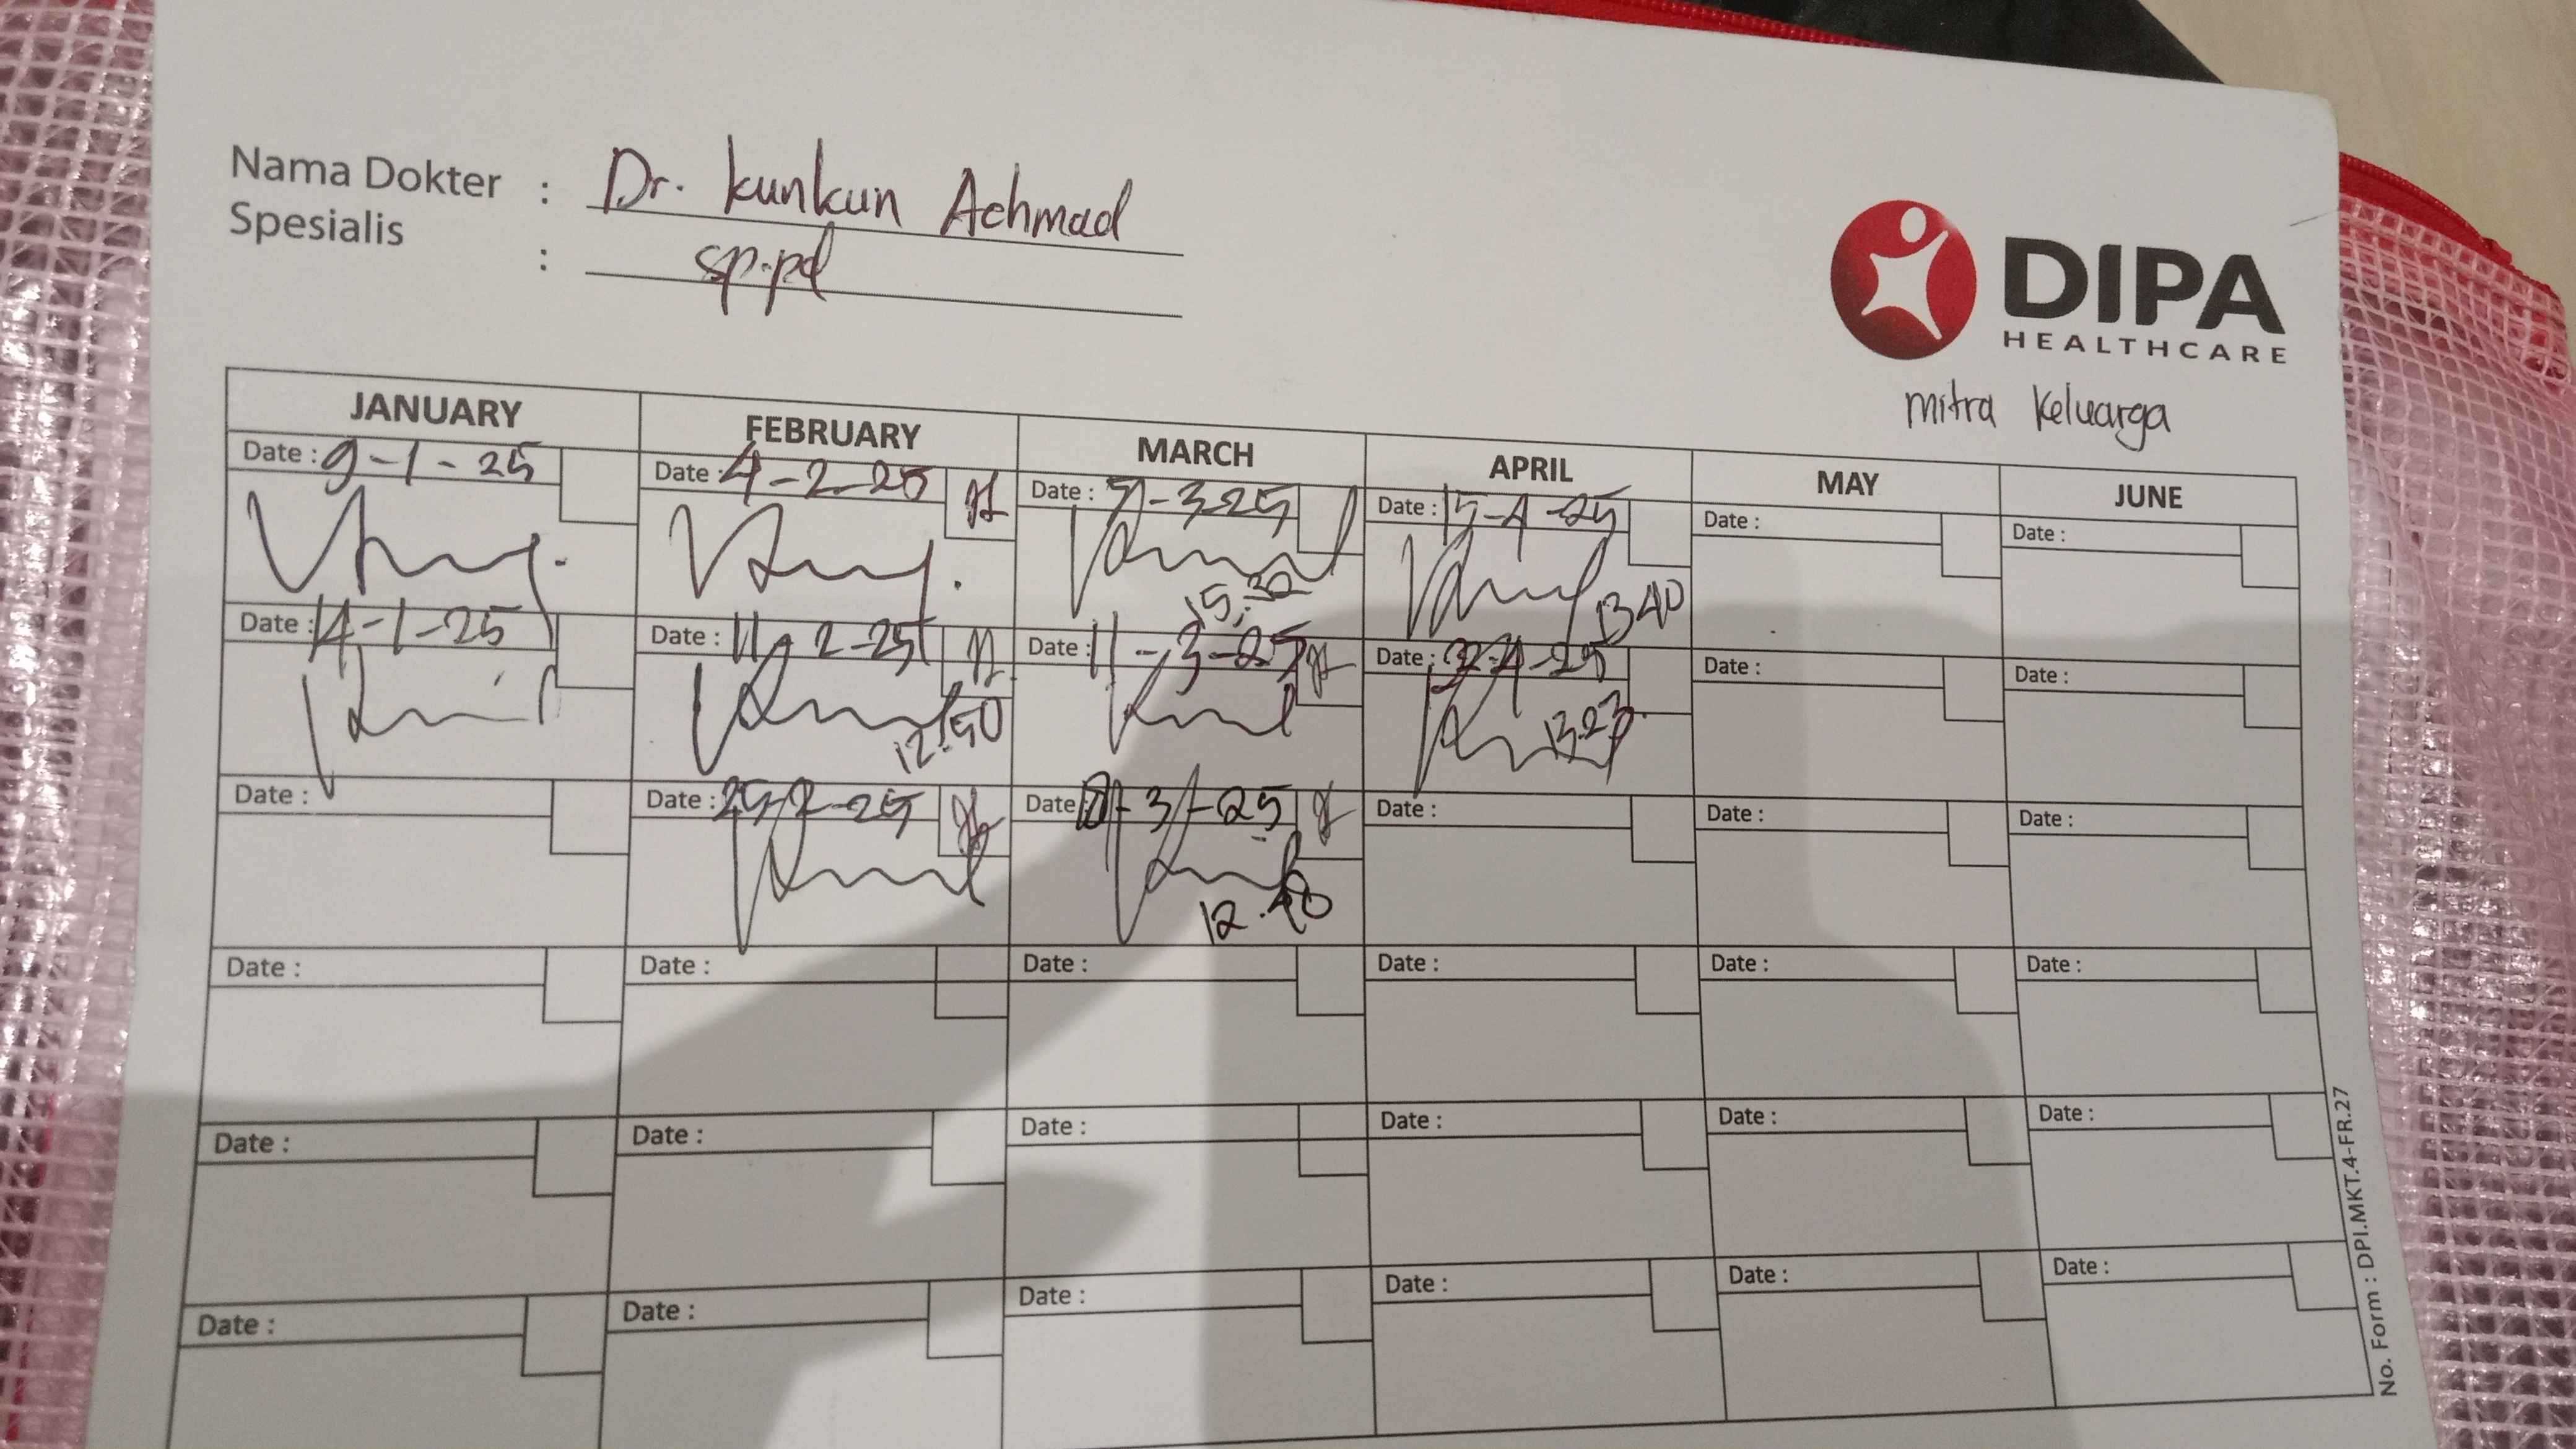 Nama Dokter : Dr. kunkun Achmad
Spesialis : sp.pd
DIPA
HEALTHCARE
mitra Keluarga
JANUARY FEBRUARY MARCH APRIL MAY JUNE
Date : 9-1-25 Date : 4-2-25 Date : 7-3-25 Date : 15-4-25 Date : Date :
15.30 1340
Date : 14-1-25 Date : 11-2-25 Date : 11-3-25 Date : Date : Date :
12.50 13.27
Date : Date : 25-2-25 Date -3-25 Date : Date : Date :
12.40
Date : Date : Date : Date : Date : Date :
Date : Date : Date : Date : Date : Date :
Date : Date : Date : Date : Date : Date :
No. Form : DPI.MKT.4-FR.27